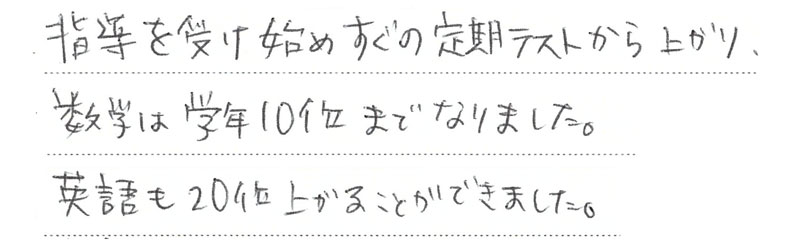 指導を受け始めすぐの定期テストから上がり、
数学は学年10位までなりました。
英語も20位上がることができました。